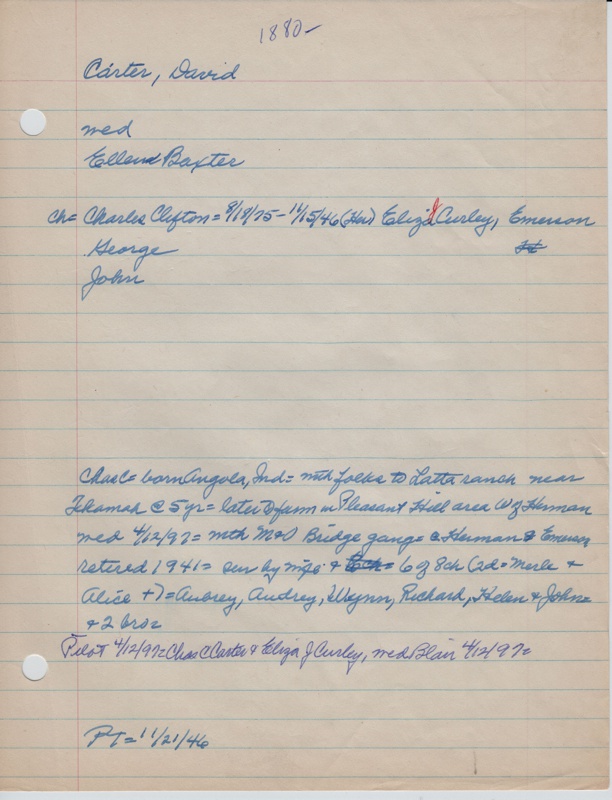 1880-
Carter, David
med
Ellen Baxter
ch= Charles Clifton = 8/18/75 - 11/15/46 (Her) Eliza J Curley, Emerson
George
John
Chas C = born Angola, Ind = mth folks to Latta ranch near
Tekamah @ 5 yr = later to farm in Pleasant Hill area W of Herman
med 4/12/97 = mth M&O Bridge gang = @ Herman & Emerson
retired 1941 = sur by mps & = 6 of 8 ch (rd = Merle &
Alice +) = Aubrey, Audrey, Wynn, Richard, Helen & John =
+ 2 bro =
Pilot 4/12/97 = Chas C Carter & Eliza J Curley, med Blair 4/12/97 =
PT = 11/21/46